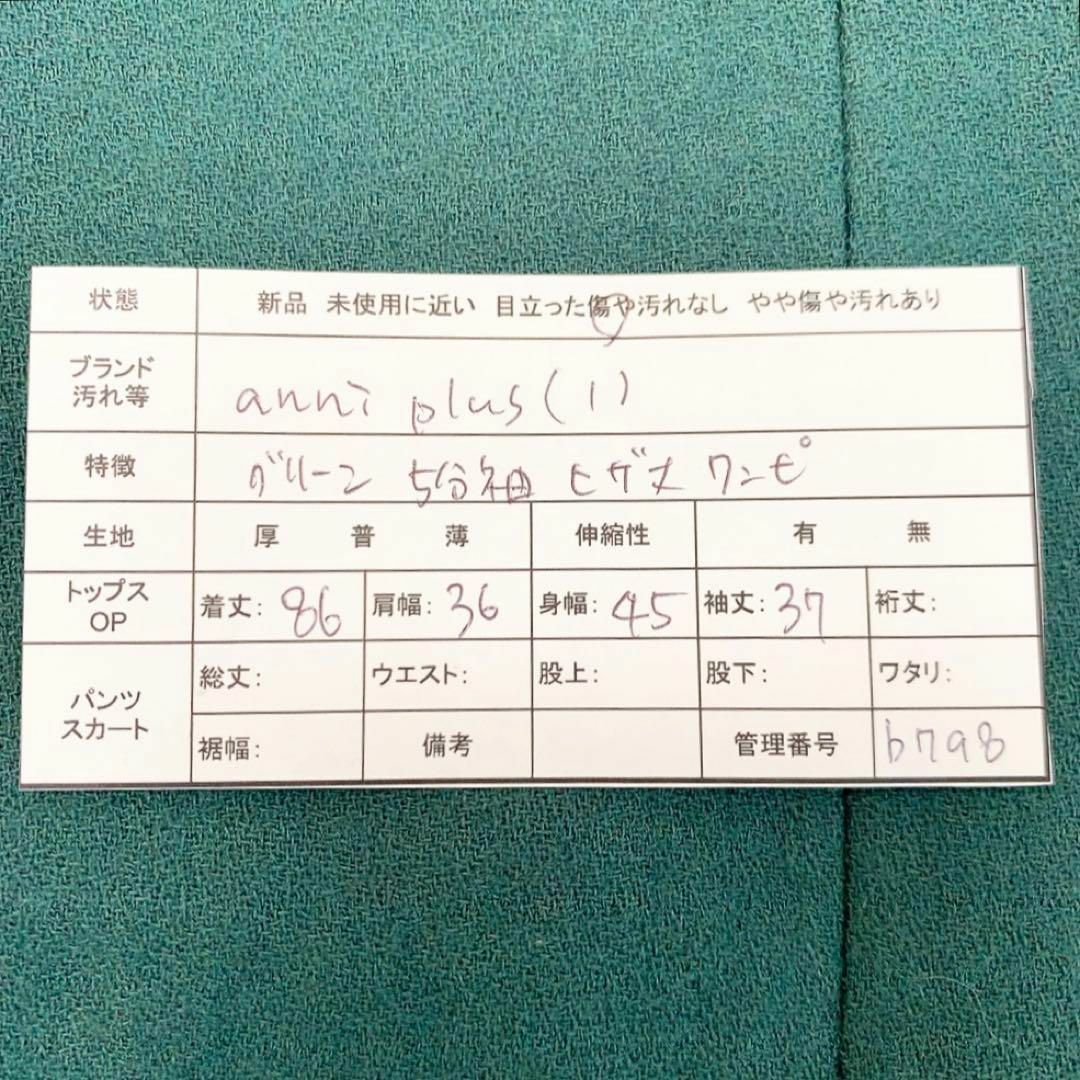 状態 新品 未使用に近い 目立った傷や汚れなし やや傷や汚れあり
ブランド
汚れ等
anni plus (1)
特徴 グリーン 5分袖 ヒザ丈 ワンピ
生地 厚 普 薄 伸縮性 有 無
トップス
OP
着丈: 86 肩幅: 36 身幅: 45 袖丈: 37 裄丈:
パンツ
スカート
総丈: ウエスト: 股上: 股下: ワタリ:
裾幅: 備考 管理番号 b798